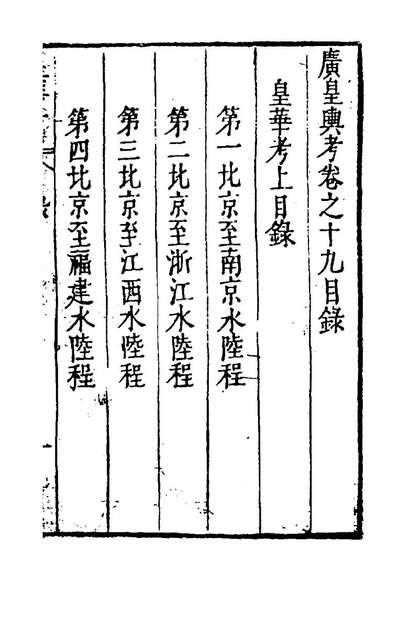 廣皇輿考卷之十九目錄
皇華考上目錄
第一北京至南京水陸程
第二北京至浙江水陸程
第三北京至江西水陸程
第四北京至福建水陸程